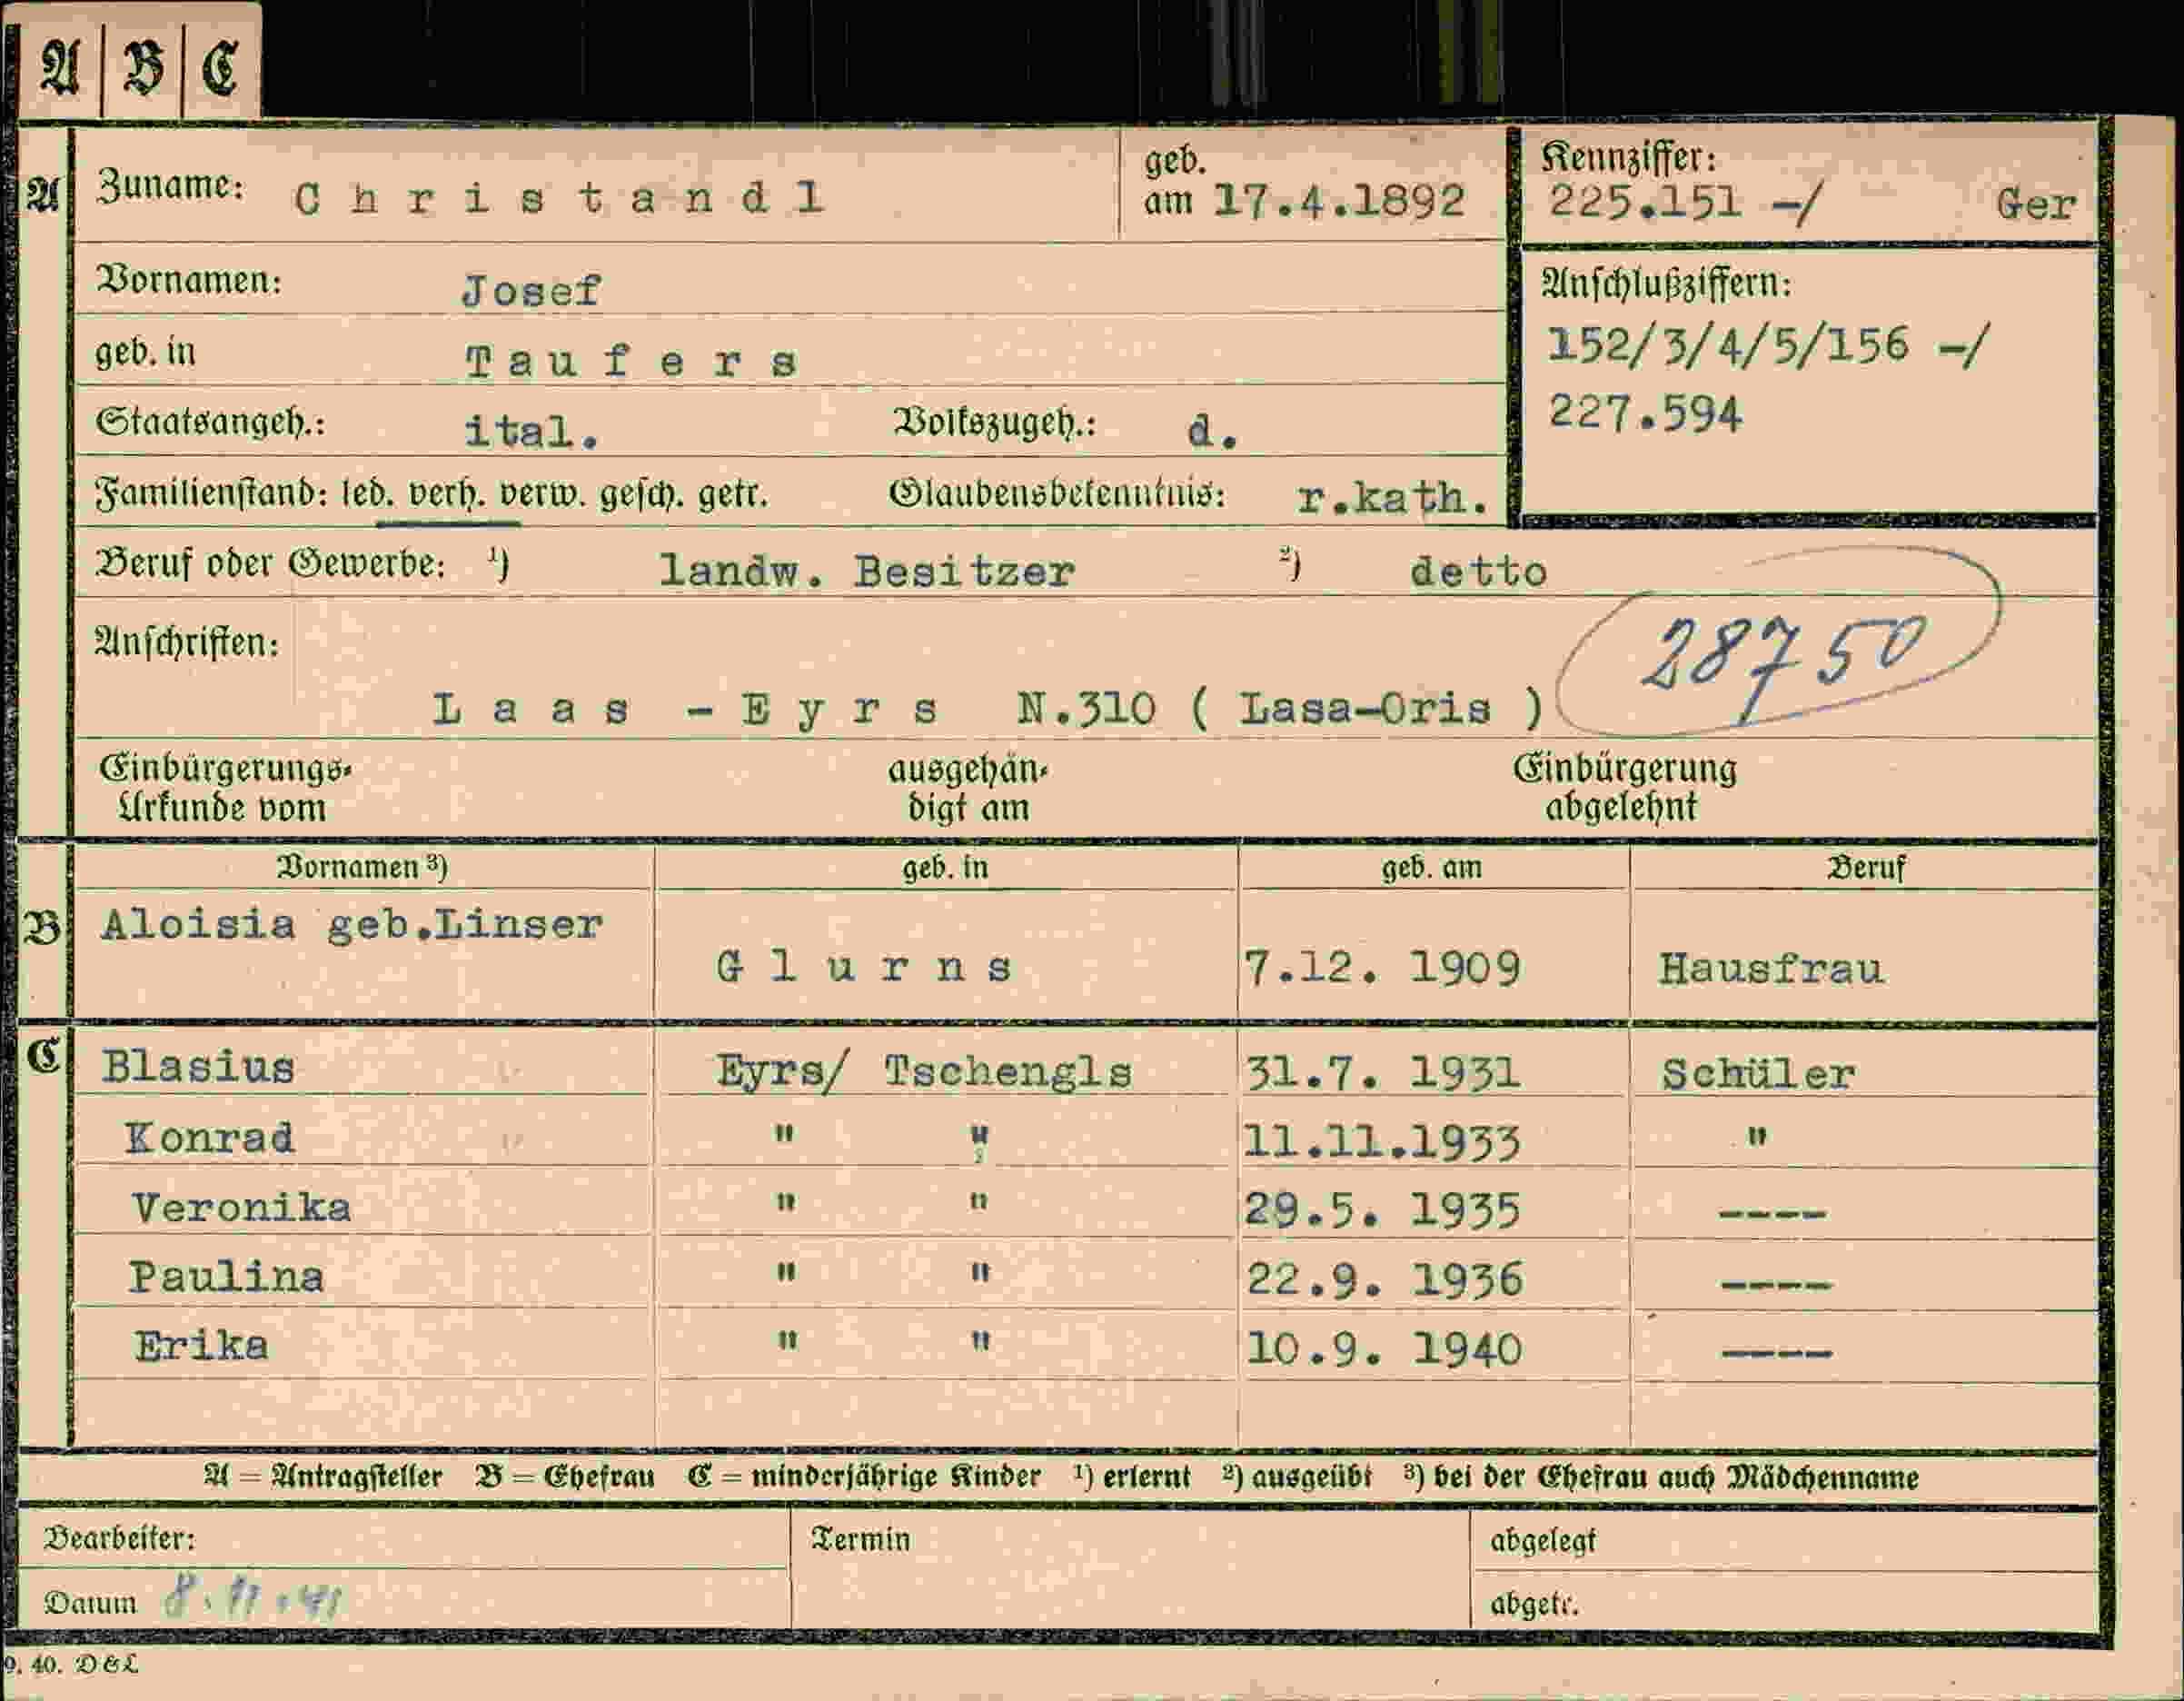 A B C
A Zuname: Christandl geb. am 17.4.1892 Kennziffer: 225.151 -/ Ger
Vornamen: Josef Anschlußziffern:
geb. in Taufers 152/3/4/5/156 -/
Staatsangeh.: ital. Volkszugeh.: d. 227.594
Familienstand: led. verh. verw. gesch. getr. Glaubensbekenntnis: r.kath.
Beruf oder Gewerbe: ¹) landw. Besitzer ²) detto
Anschriften: 28750
Laas - Eyrs N.310 ( Lasa-Oris )
Einbürgerungs- ausgehän- Einbürgerung
Urkunde vom digt am abgelehnt
Vornamen ³) geb. in geb. am Beruf
B Aloisia geb.Linser
Glurns 7.12. 1909 Hausfrau
C Blasius Eyrs/ Tschengls 31.7. 1931 Schüler
Konrad " " 11.11.1933 "
Veronika " " 29.5. 1935 ----
Paulina " " 22.9. 1936 ----
Erika " " 10.9. 1940 ----
A = Antragsteller B = Ehefrau C = minderjährige Kinder ¹) erlernt ²) ausgeübt ³) bei der Ehefrau auch Mädchenname
Bearbeiter: Termin abgelegt
Datum 8.11.41 abgetr.
9. 40. D & L